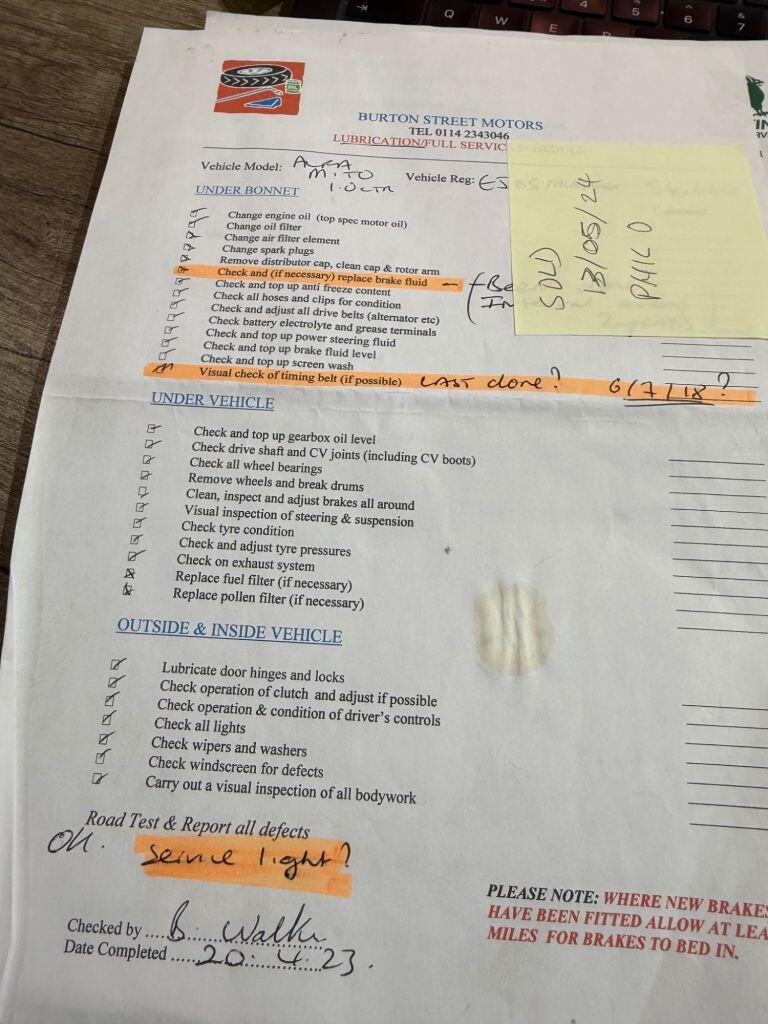 BURTON STREET MOTORS
TEL 0114 2343046
LUBRICATION/FULL SERVIC SCHEDULE
Vehicle Model: ALFA MITO 1.0LTR
Vehicle Reg:
UNDER BONNET
Change engine oil (top spec motor oil)
Change oil filter
Change air filter element
Change spark plugs
Remove distributor cap, clean cap & rotor arm
Check and (if necessary) replace brake fluid
Check and top up anti freeze content
Check all hoses and clips for condition
Check and adjust all drive belts (alternator etc)
Check battery electrolyte and grease terminals
Check and top up power steering fluid
Check and top up brake fluid level
Check and top up screen wash
Visual check of timing belt (if possible) LAST done? 6/7/18?
SOLD
13/05/24
PHIL O
UNDER VEHICLE
Check and top up gearbox oil level
Check drive shaft and CV joints (including CV boots)
Check all wheel bearings
Remove wheels and break drums
Clean, inspect and adjust brakes all around
Visual inspection of steering & suspension
Check tyre condition
Check and adjust tyre pressures
Check on exhaust system
Replace fuel filter (if necessary)
Replace pollen filter (if necessary)
OUTSIDE & INSIDE VEHICLE
Lubricate door hinges and locks
Check operation of clutch and adjust if possible
Check operation & condition of driver's controls
Check all lights
Check wipers and washers
Check windscreen for defects
Carry out a visual inspection of all bodywork
Road Test & Report all defects
OK.
Service light?
Checked by B. Walker
Date Completed 20.4.23.
PLEASE NOTE: WHERE NEW BRAKES
HAVE BEEN FITTED ALLOW AT LEA
MILES FOR BRAKES TO BED IN.